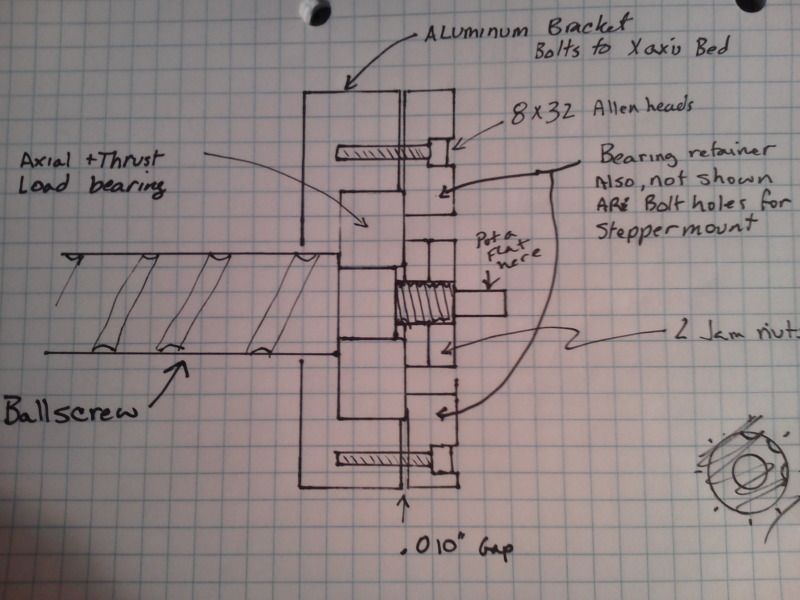 ALuminum Bracket
Bolts to X axis Bed
8x32 Allen heads
Axial + Thrust
Load bearing
Bearing retainer
Also, not shown
ARE Bolt holes for
Stepper mount
Put a
Flat
here
2 Jam nuts
Ballscrew
.010" Gap